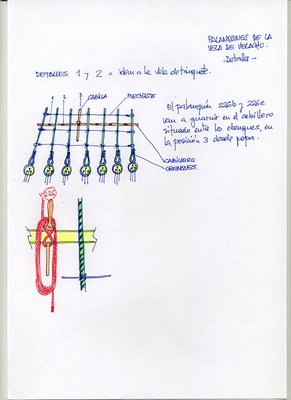 PALANQUINES DE LA
VELA DE VELACHO.
- Detalles -
DETALLES 1 y 2 = idem a la vela de trinquete.
1 2 3 CABILLA FLECHASTE
El palanquín 226b y 226c
van a guarnir en el cabillero
situado ente los obenques, en
la posición 3 desde popa.
CABILLERO
OBENQUES.